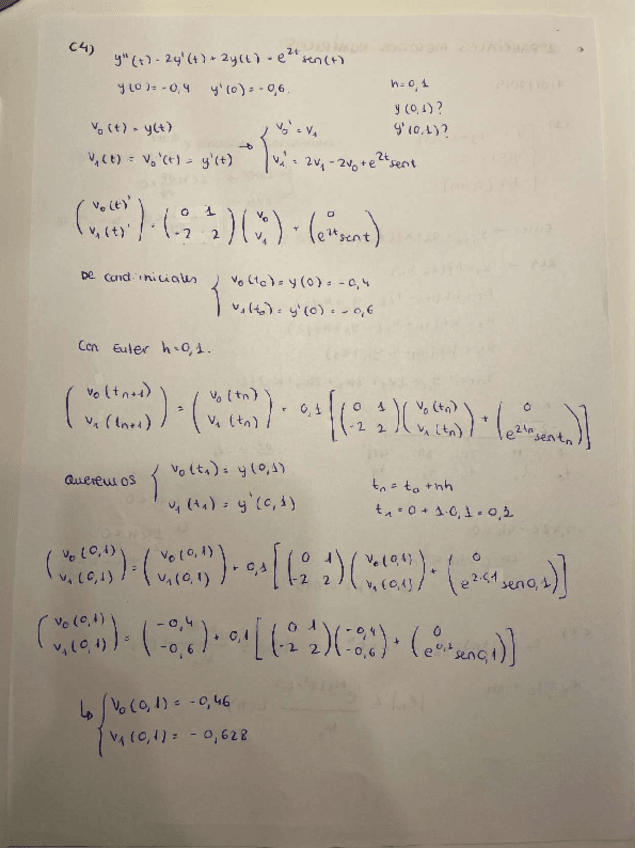 C4) y''(t) - 2y'(t) + 2y(t) = e^{2t} sen(t)
y(0) = -0,4 y'(0) = -0,6. h=0,1
y(0,1)?
y'(0,1)?
v_0(t) = y(t)
v_1(t) = v_0'(t) = y'(t) → { v_0' = v_1
v_1' = 2v_1 - 2v_0 + e^{2t} sent
( v_0(t)' ; v_1(t)' ) = ( 0 1 ; -2 2 ) ( v_0 ; v_1 ) + ( 0 ; e^{2t} sent )
De cond. iniciales { v_0(t_0) = y(0) = -0,4
v_1(t_0) = y'(0) = -0,6
Con Euler h=0,1.
( v_0(t_{n+1}) ; v_1(t_{n+1}) ) = ( v_0(t_n) ; v_1(t_n) ) + 0,1 [ ( 0 1 ; -2 2 ) ( v_0(t_n) ; v_1(t_n) ) + ( 0 ; e^{2t_n} sent_n ) ]
Queremos { v_0(t_1) = y(0,1)
v_1(t_1) = y'(0,1)
t_n = t_0 + nh
t_1 = 0 + 1·0,1 = 0,1
( v_0(0,1) ; v_1(0,1) ) = ( v_0(0,1) ; v_1(0,1) ) + 0,1 [ ( 0 1 ; -2 2 ) ( v_0(0,1) ; v_1(0,1) ) + ( 0 ; e^{2·0,1} sen0,1 ) ]
( v_0(0,1) ; v_1(0,1) ) = ( -0,4 ; -0,6 ) + 0,1 [ ( 0 1 ; -2 2 ) ( -0,4 ; -0,6 ) + ( 0 ; e^{0,2} sen0,1 ) ]
↳ { v_0(0,1) = -0,46
v_1(0,1) = -0,628